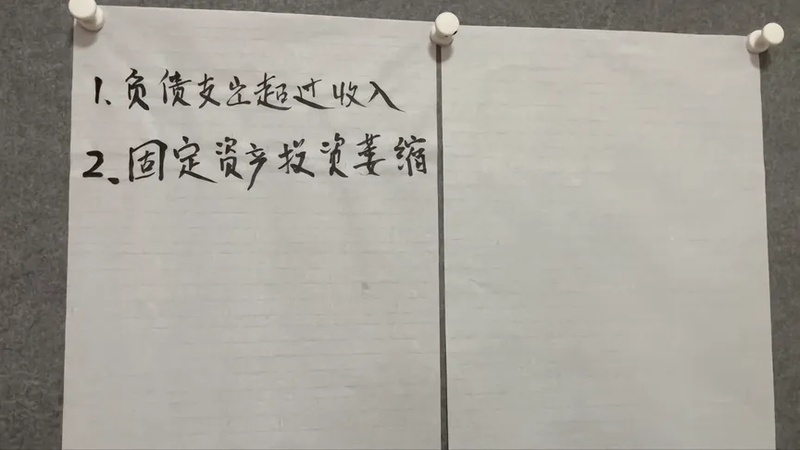 1、负债支出超过收入
2、固定资产投资萎缩